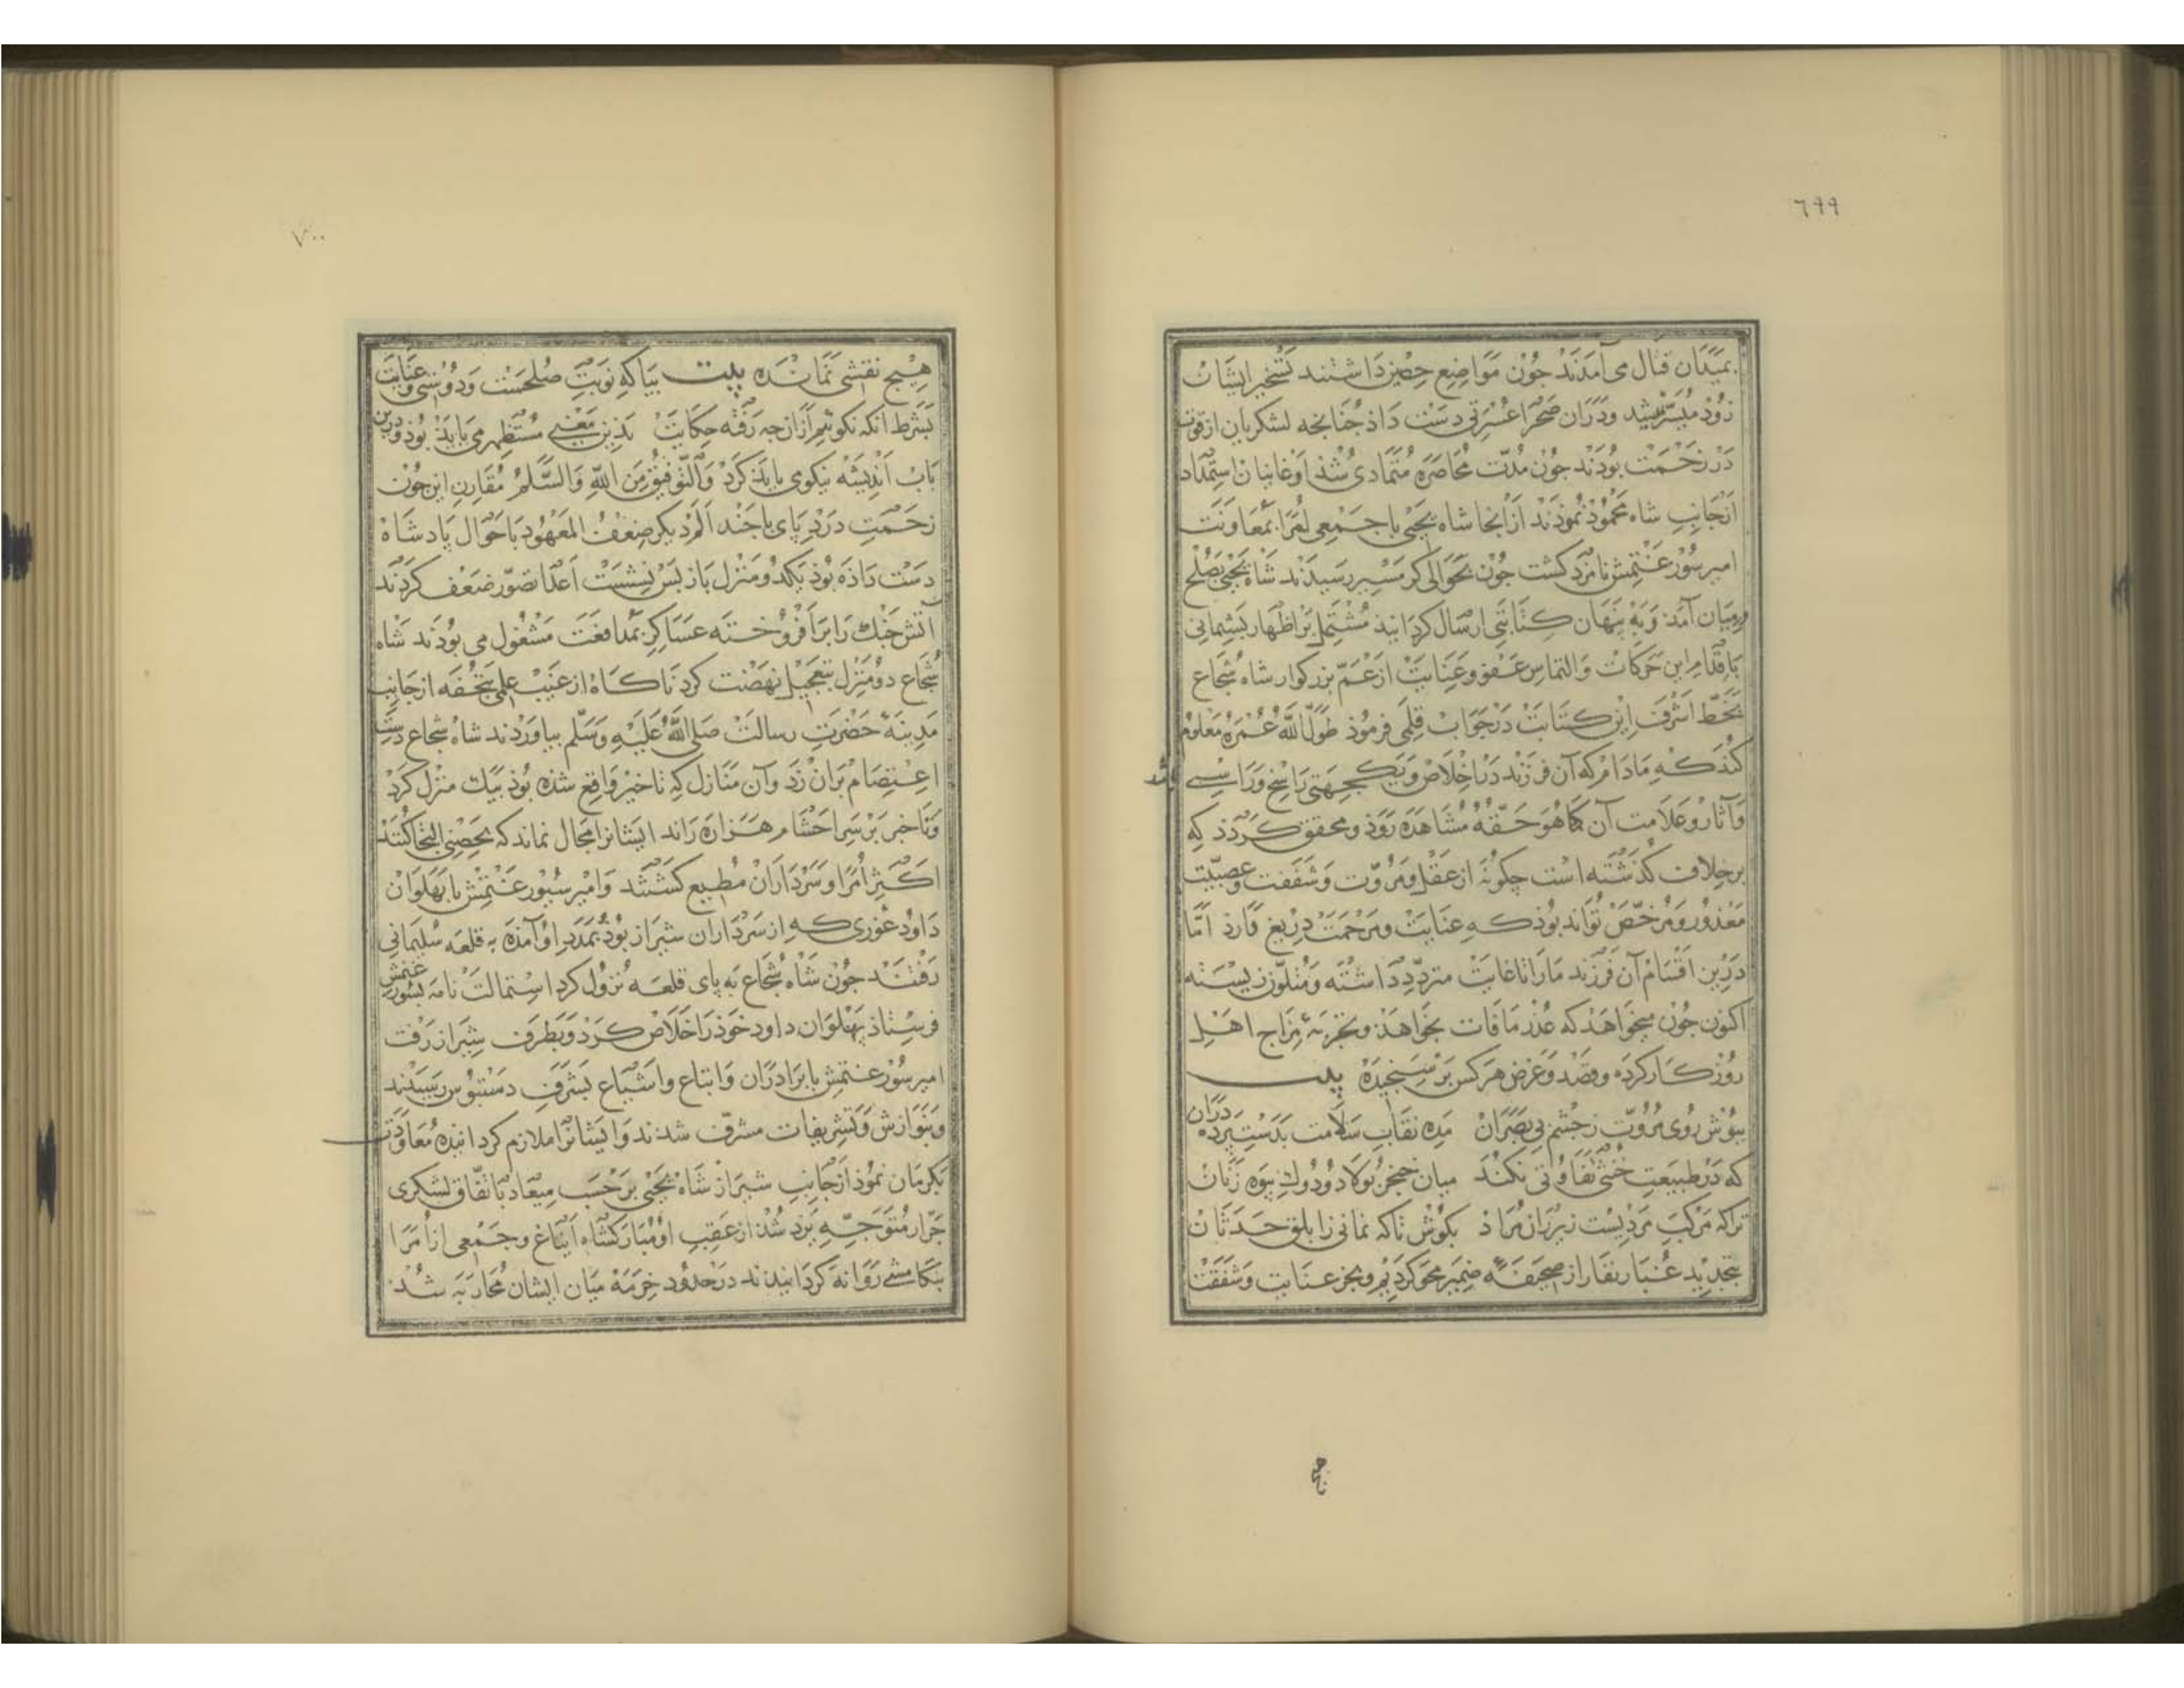 ٦٩٩
بمیدان قتال می آمدند جون مواضع حصین داشتند تسخیر ایشان
زوذ میسر نمیشد ودران صحرا عسرتی دست داذ جنانجه لشکریان از قوت
در زحمت بودند جون مدّت محاصره متمادی شذ اوغانیان استمداد
ازجانب شاه محموذ نموذند ازانجا شاه یحیی با جمعی امرا بمعاونت
امیر سورغتمش نامزد کشت جون بحوالی کرمسیر رسیدند شاه یحیی بصلح
درمیان آمد وبه بنهان کتابتی ارسال کردانید مشتمل بر اظهار بشیمانی
باقدام این حرکات والتماس عفو وعنایت ازعمّ بزرکوار شاه شجاع
بخطّ اشرف این کتابت درجواب قلمی فرموذ طوّل الله عمره معلوم
کند که مادام که آن فرزند در اخلاص ویکجهتی راسخ وراسی باشد
وآثار وعلامت آن کما هو حقّه مشاهده روذ ومحقق کردد که
برخلاف کذشته است چکونه از عقل ومروّت وشفقت وعصبیّت
معذور ومرخّص تواند بوذ که عنایت ومرحمت دریغ دارذ امّا
درین اقسام آن فرزند مارا تاغایت متردّد داشته ومتلوّن زیسته
اکنون جون میخواهد که عذر مافات بخواهذ وتجربهٔ مزاج اهل
روزکار کرده وقصد وغرض هرکس برسنجیده بیت
ببوش روی مروّت زجشم بی بصران مده نقاب سلامت بدست برده دران
که در طبیعت خنثی تفاوتی نکند میان خنجر بولاد ودوك بیوه زنان
تراکه مرکب مردیست زیر ران مراد بکوش تاکه نمانی زابلق حدثان
بتجدید غبار نقار از صحیفهٔ ضمیر محو کردیم وبجز عنایت وشفقت
هیچ
٧٠٠
هیچ نقشی نمانده بیت بیا که نوبت صلحست ودوستی وعنایت
بشرط آنکه نکوئیم ازان جه رفت حکایت بذین معنی مستظهر می بایذ بوذ ودرین
باب اندیشه نیکوی بایذ کرد والتوفیق من الله والسّلم مقارن این جون
زحمت درد پای با جند الم دیکر ضعف المعهود باحوال پادشاه
دست داذه بوذ یکدو منزل باز بس نشست اعدا تصوّر ضعف کردند
آتش جنك را برافروخته عساکر بمدافعت مشغول می بودند شاه
شجاع دو منزل بتعجیل نهضت کرد ناکاه ازغیب علمی بتحفه ازجانب
مدینهٔ حضرت رسالت صلی الله علیه وسلّم بیاوردند شاه شجاع دست
اعتصام بران زد وآن منازل که تاخیر واقع شذه بوذ بیك منزل کرد
وتاختی بر سر احشام هزاره راند ایشانرا مجال نماند که بحصنی التجا کنند
اکثر امرا وسرداران مطیع کشتند وامیر سیورغتمش با بهلوان
داود غوری که از سرداران شیراز بوذ بمدد او آمذه به قلعه سلیمانی
رفتند جون شاه شجاع به پای قلعه نزول کرد استمالت نامه بسورغتمش
فرستاذ بهلوان داود خوذ را خلاص کرد وبطرف شیراز رفت
امیر سورغتمش با برادران واتباع واشیاع بشرف دستبوس رسیدند
وبنوازش وتشریفات مشرّف شدند وایشانرا ملازم کردانیده معاودت
بکرمان نموذ ازجانب شیراز شاه یحیی برحسب میعاد باتفّاق لشکری
جرّار متوجّه یزد شذ از عقب او مبارکشاه ایناغ وجمعی از امرا
بتکامشی روانه کردانیدند درحدود خرمه میان ایشان محاربه شد